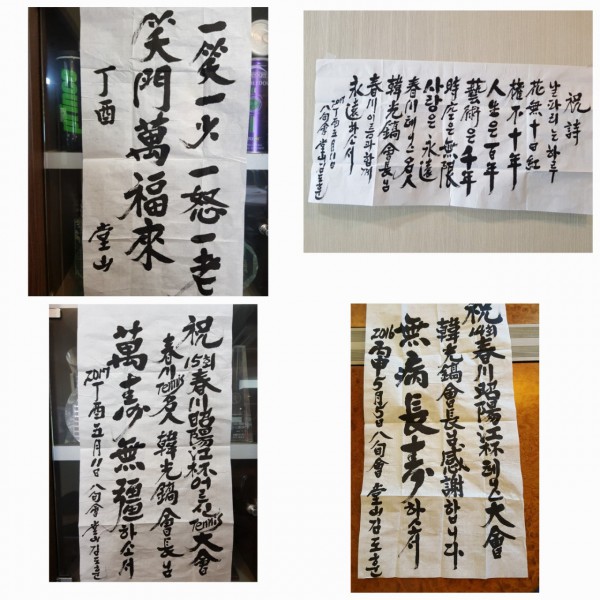 一笑一少 一怒一老
笑門萬福來
丁酉
堂山
祝詩
날파리는 하루
花無十日紅
權不十年
人生은 百年
藝術은 千年
時空은 無限
사랑은 永遠
春川 테니스 名人
韓光鎬 會長님
春川 이름과 함께
永遠하소서
2017 丁酉 五月 11日
八旬會 堂山 김도훈
祝
15회 春川昭陽江杯 어르신 Tennis 大會
春川 Tennis 名人 韓光鎬 會長님
萬壽無疆하소서
2017 丁酉 五月 11日 八旬會 堂山 김도훈
祝
14회 春川昭陽江杯 테니스 大會
韓光鎬 會長님 感謝합니다
無病長壽하소서
2016 丙申 5月 5日 八旬會 堂山 김도훈